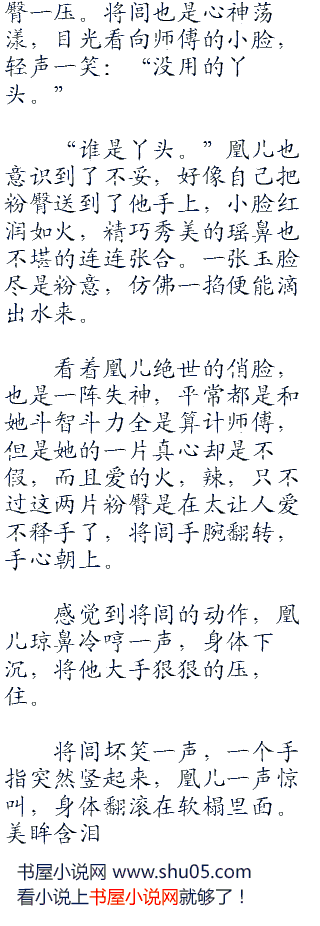 臀一压。将闾也是心神荡
漾，目光看向师傅的小脸，
轻声一笑：“没用的丫
头。”
“谁是丫头。”凰儿也
意识到了不妥，好像自己把
粉臀送到了他手上，小脸红
润如火，精巧秀美的瑶鼻也
不堪的连连张合。一张玉脸
尽是粉意，仿佛一掐便能滴
出水来。
看着凰儿绝世的俏脸，
也是一阵失神，平常都是和
她斗智斗力全是算计师傅，
但是她的一片真心却是不
假，而且爱的火，辣，只不
过这两片粉臀是在太让人爱
不释手了，将闾手腕翻转，
手心朝上。
感觉到将闾的动作，凰
儿琼鼻冷哼一声，身体下
沉，将他大手狠狠的压，
住。
将闾坏笑一声，一个手
指突然竖起来，凰儿一声惊
叫，身体翻滚在软榻里面。
美眸含泪
书屋小说网 www.shu05.com
看小说上书屋小说网就够了！